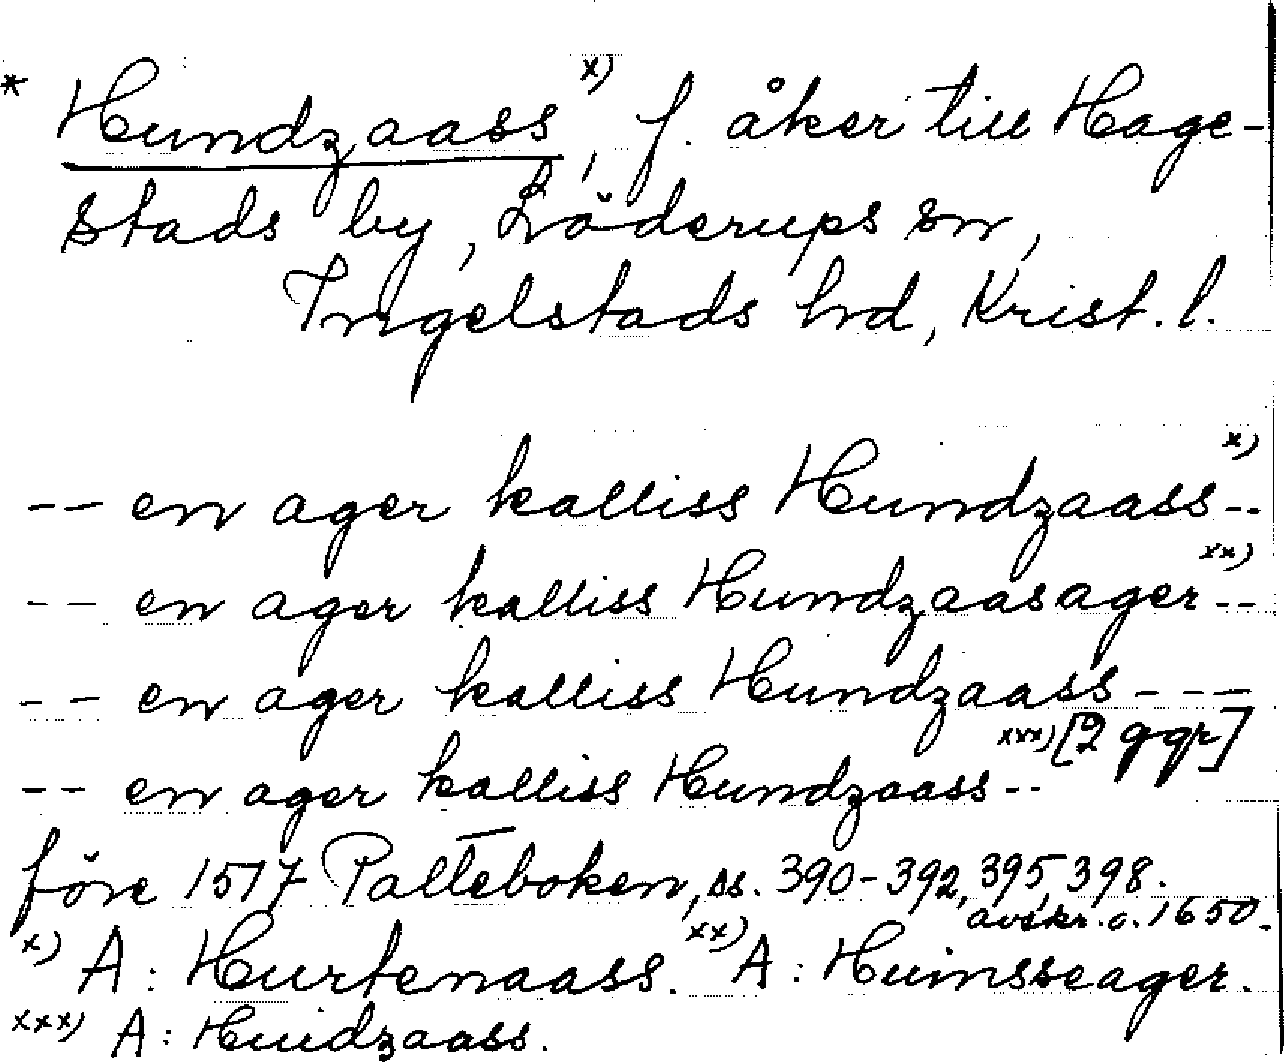 * Hundzaass x), f. åker till Hage-
stads by, Löderups sn,
Ingelstads hrd, Krist. l.
-- en ager kalliss Hundzaass x) --
-- en ager kalliss Hundzaasager xx) --
-- en ager kalliss Hundzaass ---
-- en ager kalliss Hundzaass -- xxx) [2 ggr]
före 1517 Palteboken, ss. 390-392, 395, 398.
avskr. c. 1650.
x) A: Hurtenaass. xx) A: Huinsseager.
xxx) A: Huidzaass.